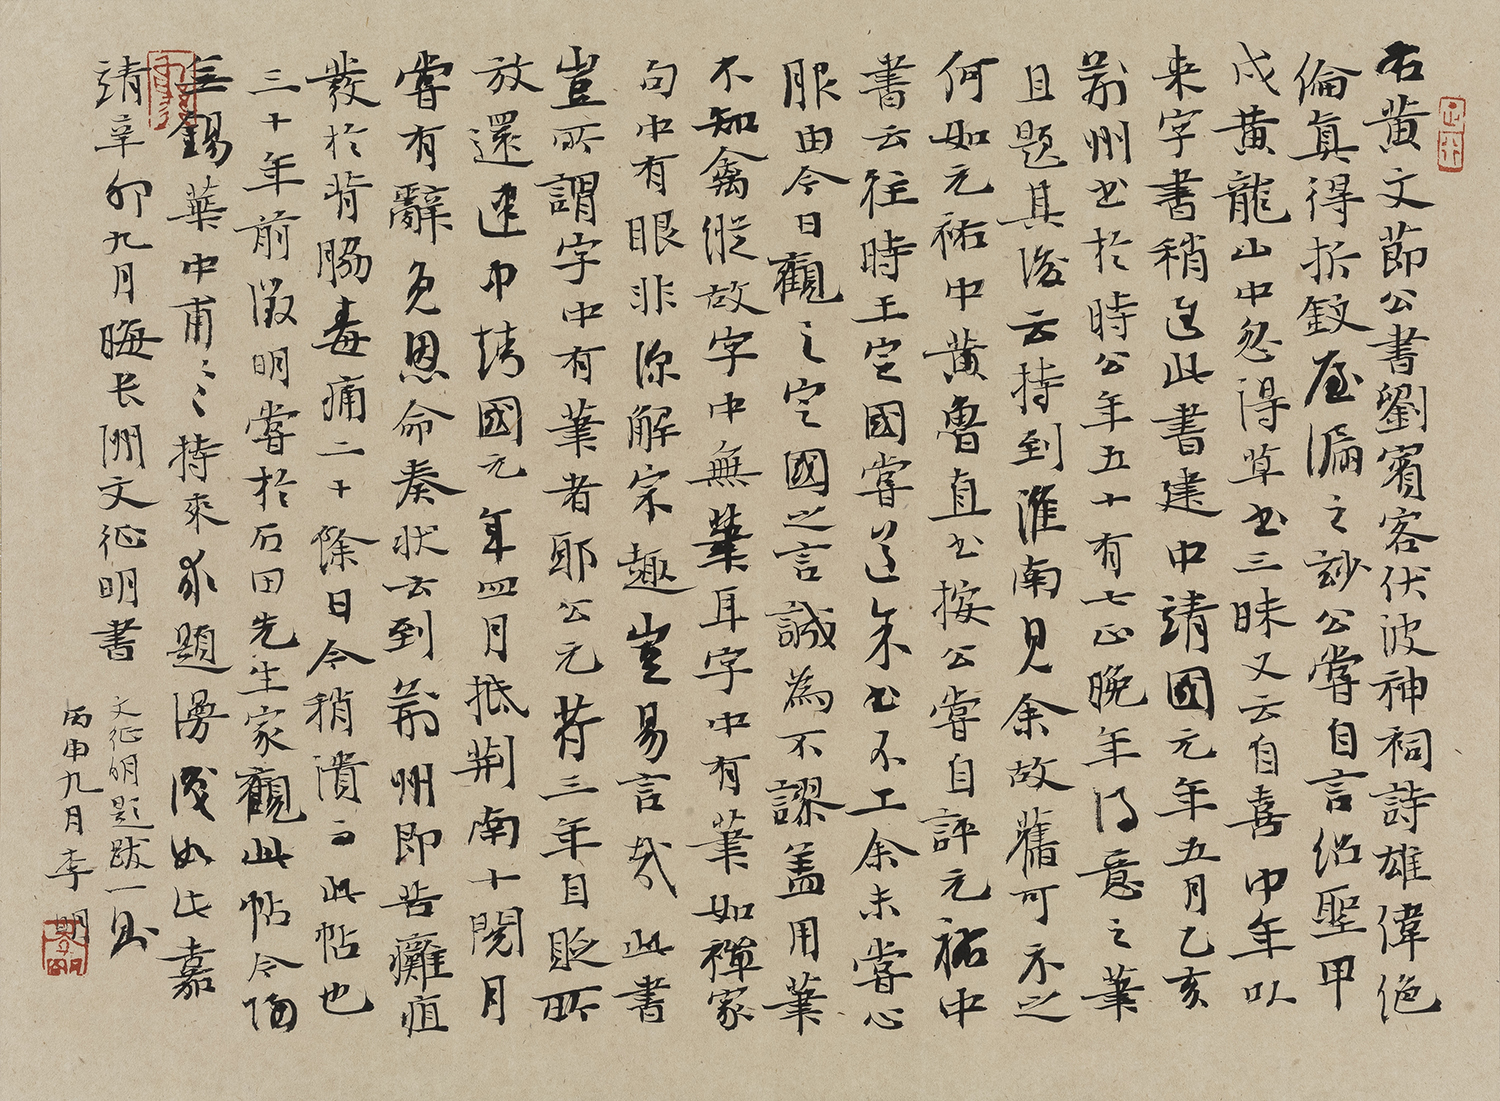 右黃文節公書劉賓客伏波神祠詩雄偉絕
倫真得折釵屋漏之妙公嘗自言紹聖甲
戌黃龍山中忽得草书三昧又云自喜中年以
来字書稍進此書建中靖國元年五月乙亥
荊州书於時公年五十有七正晚年得意之筆
且題其後云持到淮南見余故舊可不之
何如元祐中黃魯直书按公嘗自評元祐中
書云往時王定國嘗道余书不工余未嘗心
服由今日觀之定國之言誠為不謬盖用筆
不知禽縱故字中無筆耳字中有筆如禪家
句中有眼非深解宗趣豈易言哉此書
豈所謂字中有筆者耶公元符三年自貶所
放還建中靖國元年四月抵荆南十閱月
嘗有辭免恩命奏状云到荊州即苦癰疽
發於背脇毒痛二十除日今稍潰而此帖也
三十年前徵明嘗於石田先生家觀此帖今陽
羨錫華中甫々々持來求題漫識如此嘉
靖辛卯九月晦长洲文征明書
文征明題跋一则
丙申九月李明